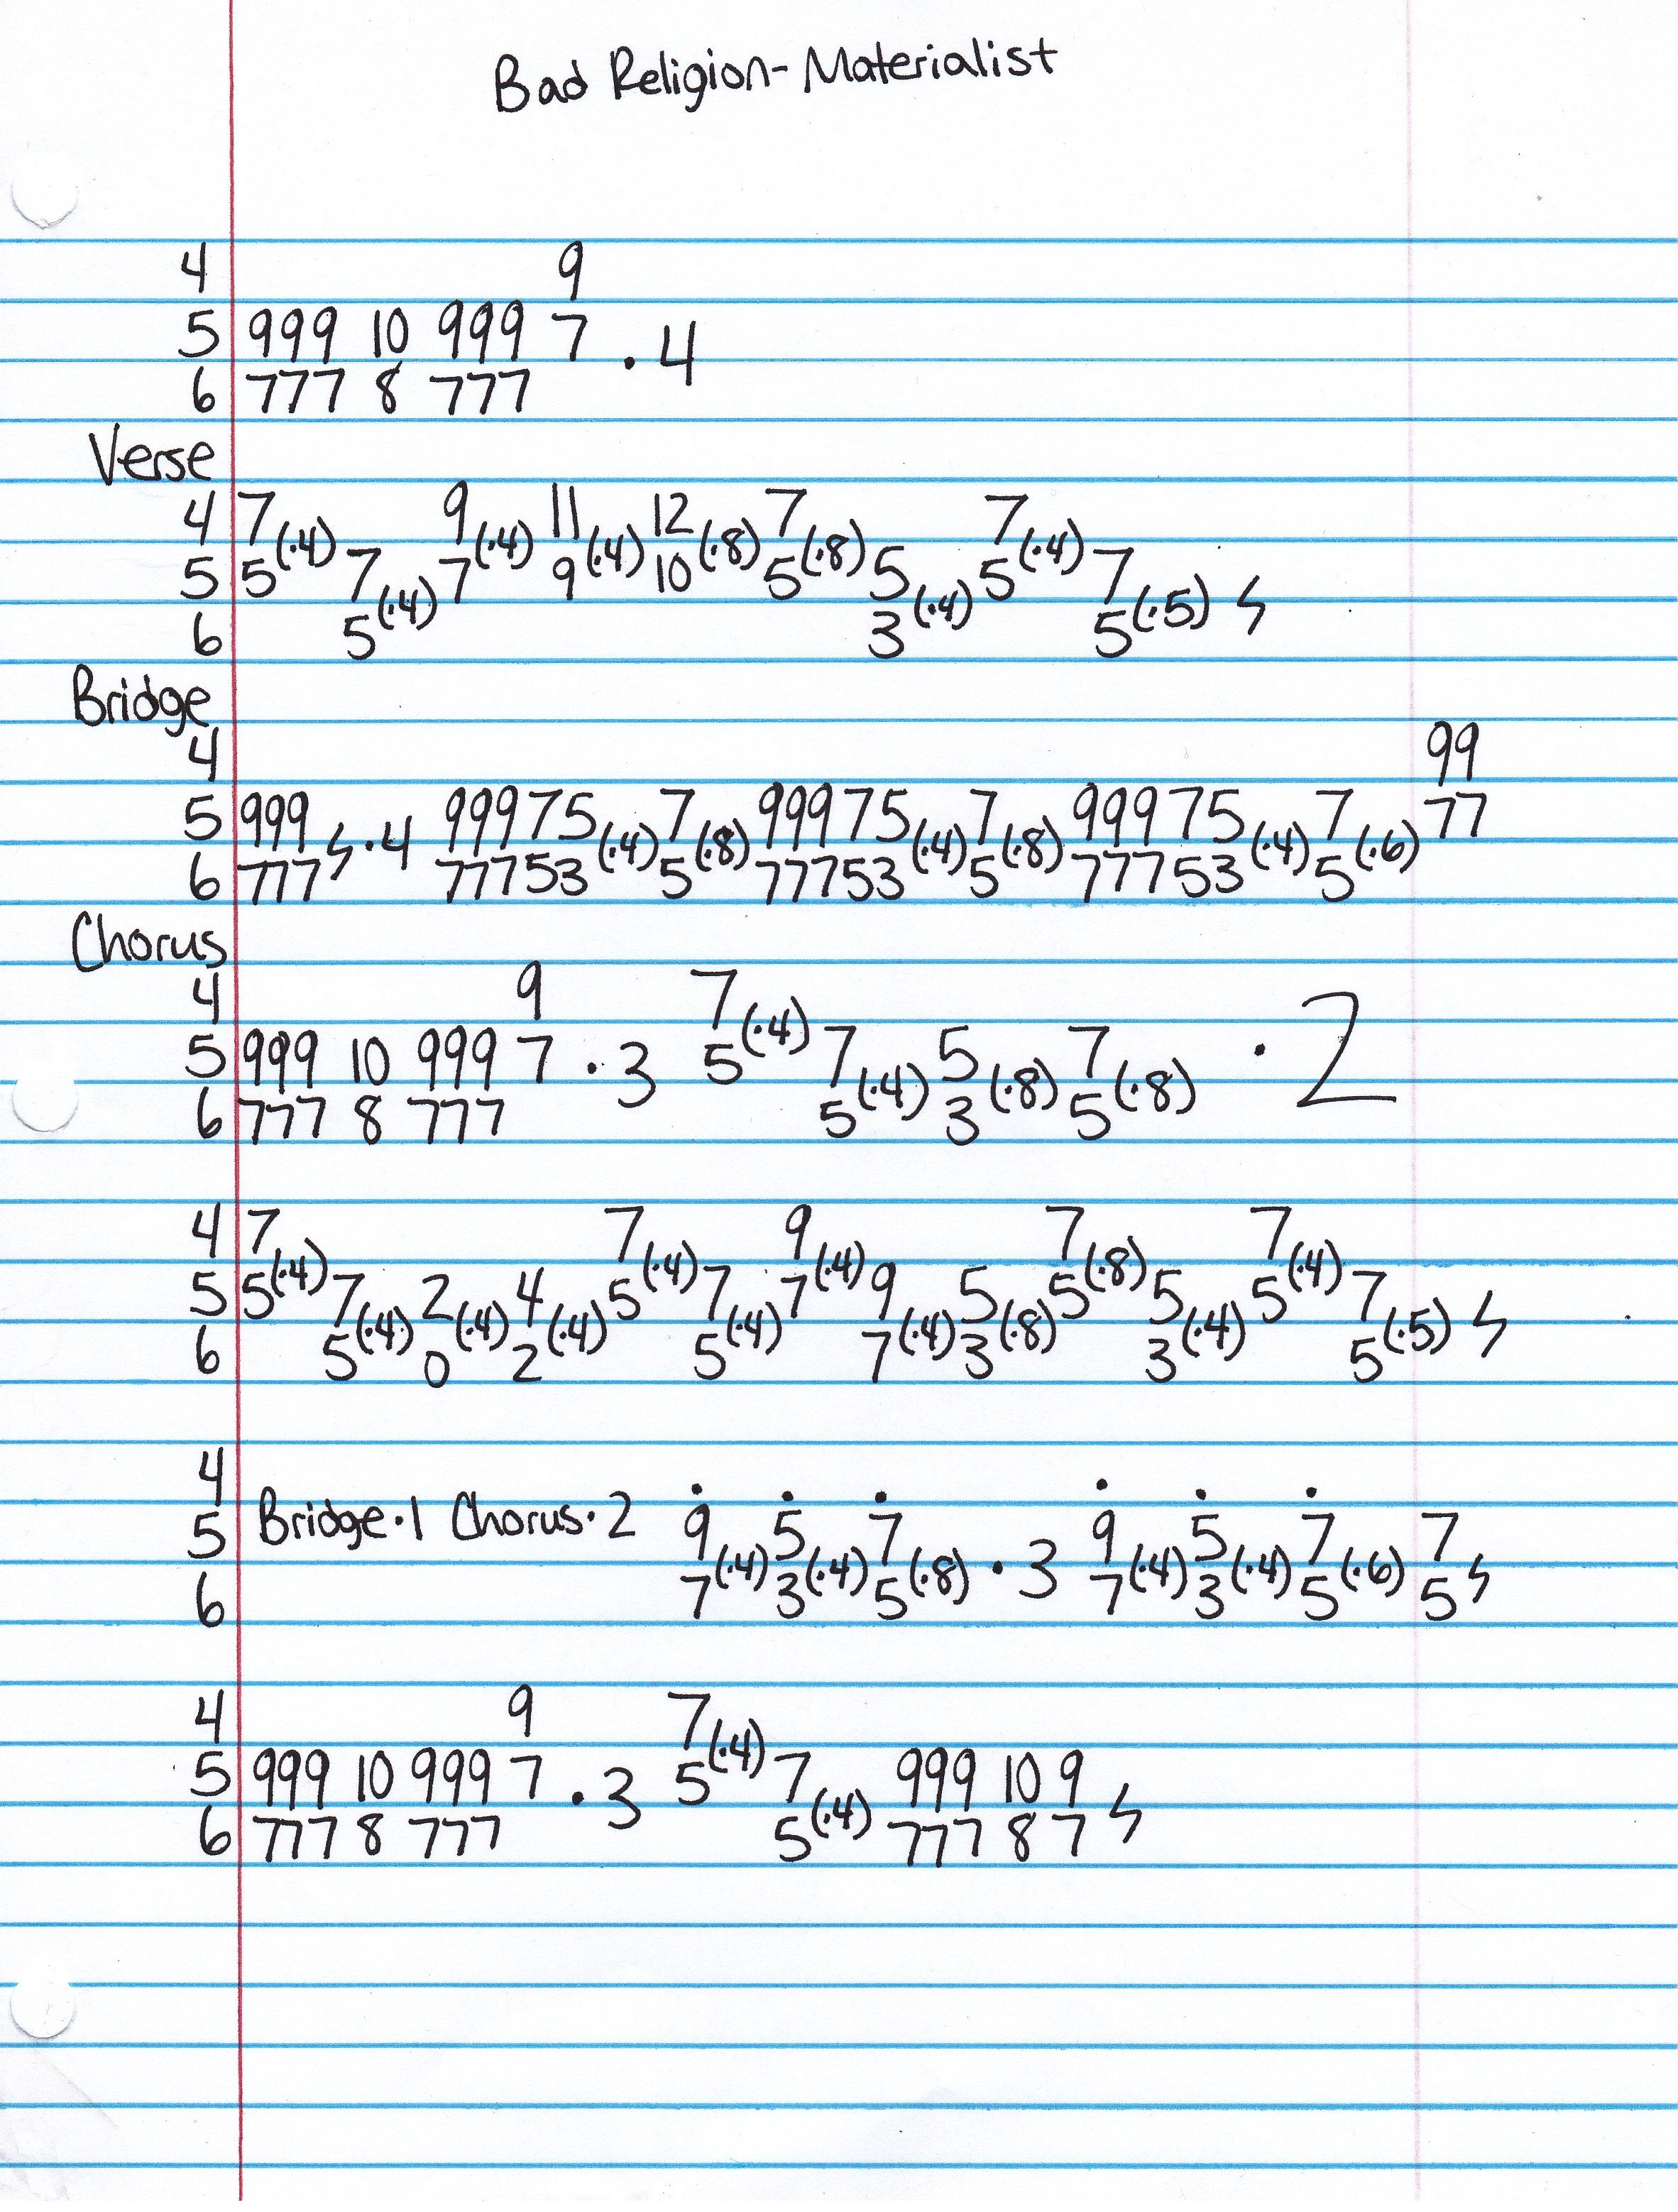 Bad Religion - Materialist
4 9
5 999 10 999 7 · 4
6 777 8 777
Verse
4 7 9 11 12 7 7
5 5(·4) 7 7(·4) 9(·4) 10(·8) 5(·8) 5 5(·4) 7
6 5(·4) 3(·4) 5(·5) ϟ
Bridge
4 99
5 999 99975 7 99975 7 99975 7 77
6 777 ϟ · 4 77753(·4) 5(·8) 77753(·4) 5(·8) 77753(·4) 5(·6)
Chorus
4 9 7
5 999 10 999 7 · 3 5(·4) 7 5 7 · 2
6 777 8 777 5(·4) 3(·8) 5(·8)
4 7 7 9 7 7
5 5(·4) 7 2 4 5(·4) 7 7(·4) 9 5 5(·8) 5 5(·4) 7
6 5(·4) 0(·4) 2(·4) 5(·4) 7(·4) 3(·8) 3(·4) 5(·5) ϟ
4 · · · · · ·
5 Bridge · 1 Chorus · 2 9 5 7 9 5 7 7
6 7(·4) 3(·4) 5(·8) · 3 7(·4) 3(·4) 5(·6) 5 ϟ
4 9 7
5 999 10 999 7 · 3 5(·4) 7 999 10 9
6 777 8 777 5(·4) 777 8 7 ϟ